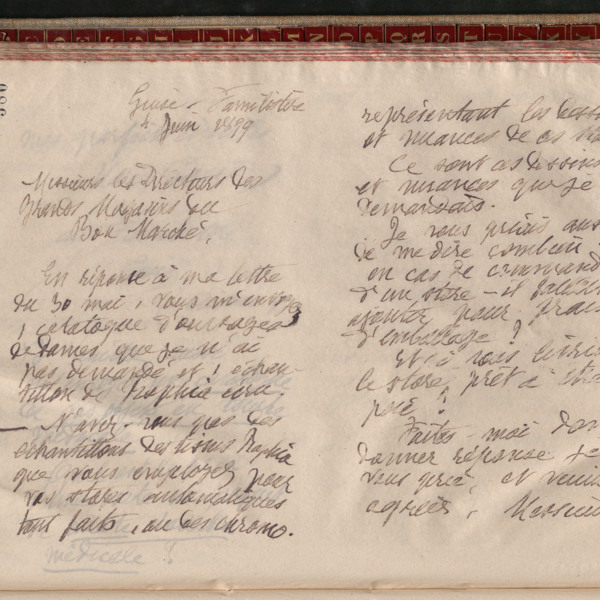 Guise - Familistère
4 Juin 1899
Messieurs les Directeurs des
Grands Magasins du
Bon Marché,
En réponse à ma lettre
du 30 mai, vous m'envoyez
1 catalogue d'ouvrages
de dames que je n'ai
pas demandé et 1 échan-
tillon de Raphia écru.
N'avez-vous pas des
échantillons des tissus Raphia
que vous employez pour
vos stores automatiques
tout faits, au des chromo.
médicale ?
représentant les
et nuances de ces
Ce sont ces dessins
et nuances que je
demandais.
Je vous priais aussi
de me dire combien
en cas de commande
d'un store - il faudrait
ajouter pour frais
d'emballage ?
Et si vous
le store, prêt à être
posé ?
Faites-moi donc
donner réponse je
vous prie, et
agréer, Messieurs
380
E F I J K L M N O P Q R S T U